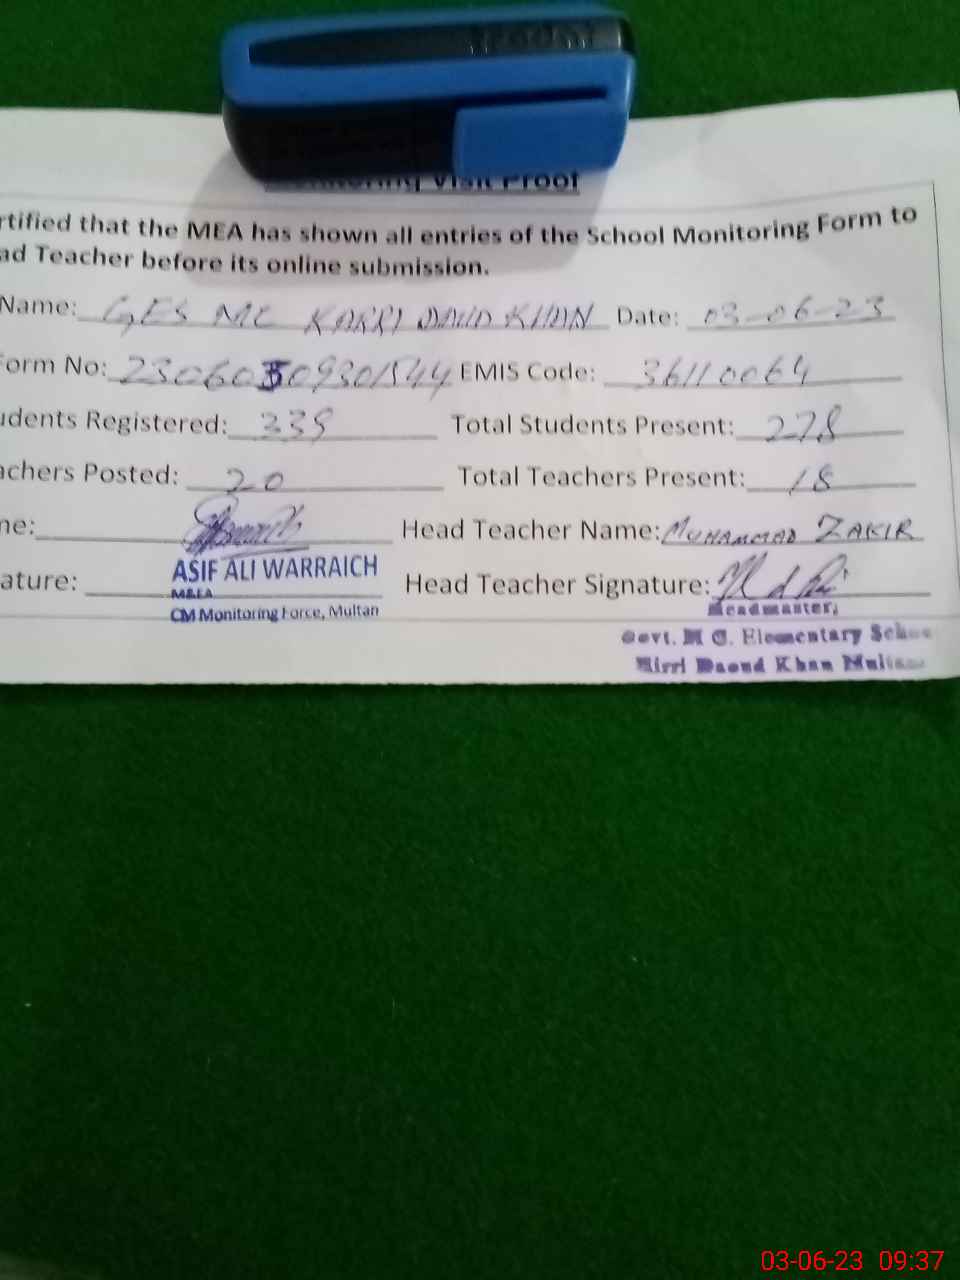 Monitoring Visit Proof
rtified that the MEA has shown all entries of the School Monitoring Form to
ad Teacher before its online submission.
Name: GES MC KARRI DAUD KHAN Date: 03-06-23
orm No: 23060309301544 EMIS Code: 36110064
udents Registered: 339 Total Students Present: 278
achers Posted: 20 Total Teachers Present: 18
ne: Head Teacher Name: MUHAMMAD ZAKIR
ature: ASIF ALI WARRAICH Head Teacher Signature:
M&EA
CM Monitoring Force, Multan
Headmaster,
Govt. M C. Elementary Schoo
Kirri Daoud Khan Multan
03-06-23 09:37